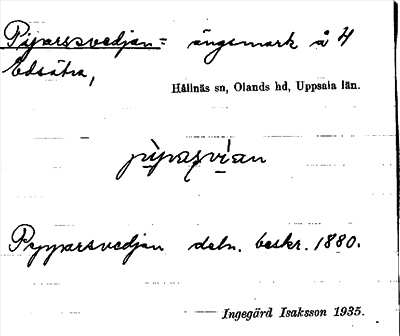 Pijarssvedjan = ängsmark å 4
Edsätra,
Hållnäs sn, Olands hd, Uppsala län.
pi̱pasvi̱an
Pyyparsvedjan deln. beskr. 1880.
Ingegärd Isaksson 1935.